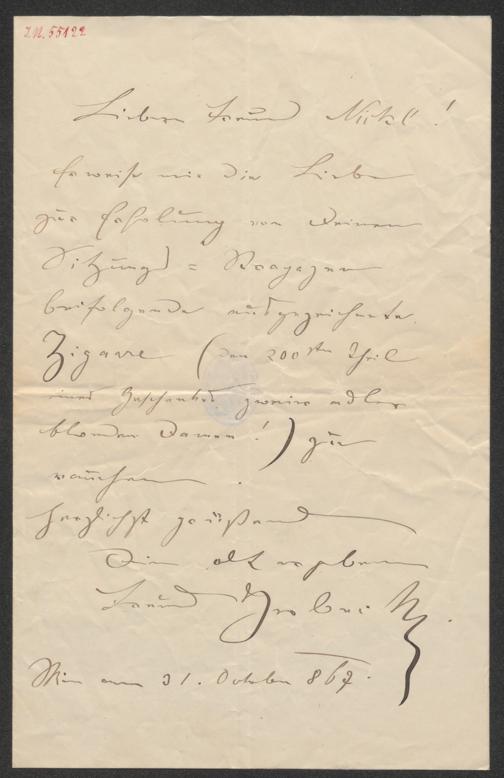 I.N. 55122
Lieber Freund Nickl!
Erweise mir die Liebe
zur Erholung von Deinen
Sitzungs=
beifolgende ausgezeichnete
Zigarre (den 200sten Theil
eines Geschenkes zweier edler
blonder Damen!) zu
rauchen.
Herzlichst grüßend
Dein alt ergebener
Freund
Wien am 31. October 867.